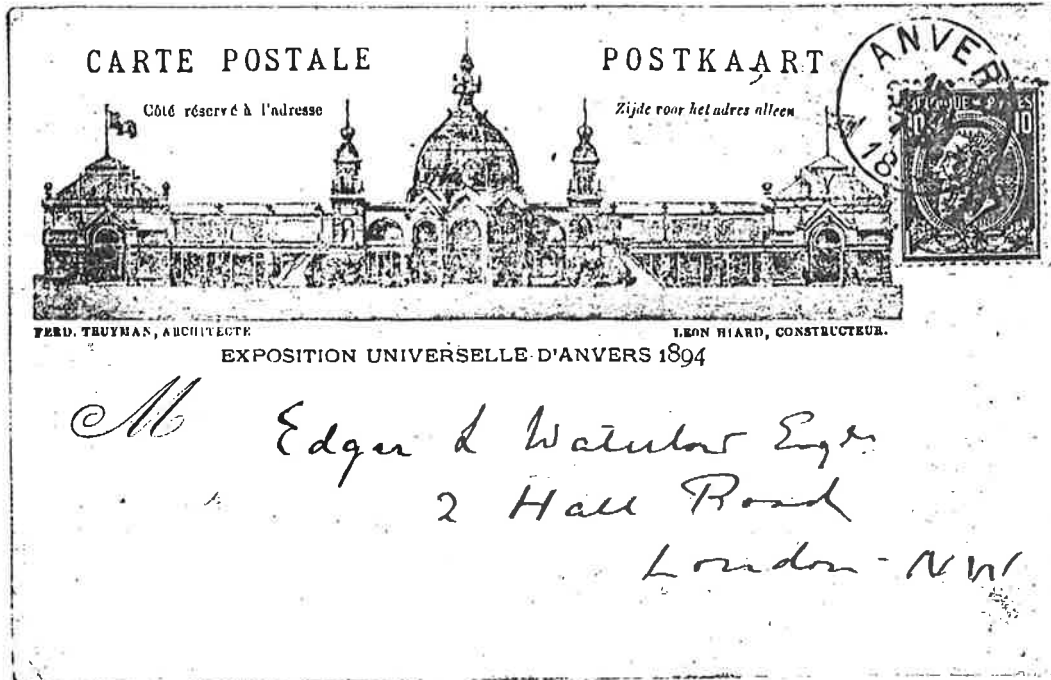 CARTE POSTALE
POSTKAART
Côté réservé à l'adresse
Zijde voor het adres alleen
ANVER
18
10 10
FERD. TRUYMAN, ARCHITECTE
LEON HIARD, CONSTRUCTEUR.
EXPOSITION UNIVERSELLE D'ANVERS 1894
M Edgar L Waterlow Esqr
2 Hall Road
London - NW